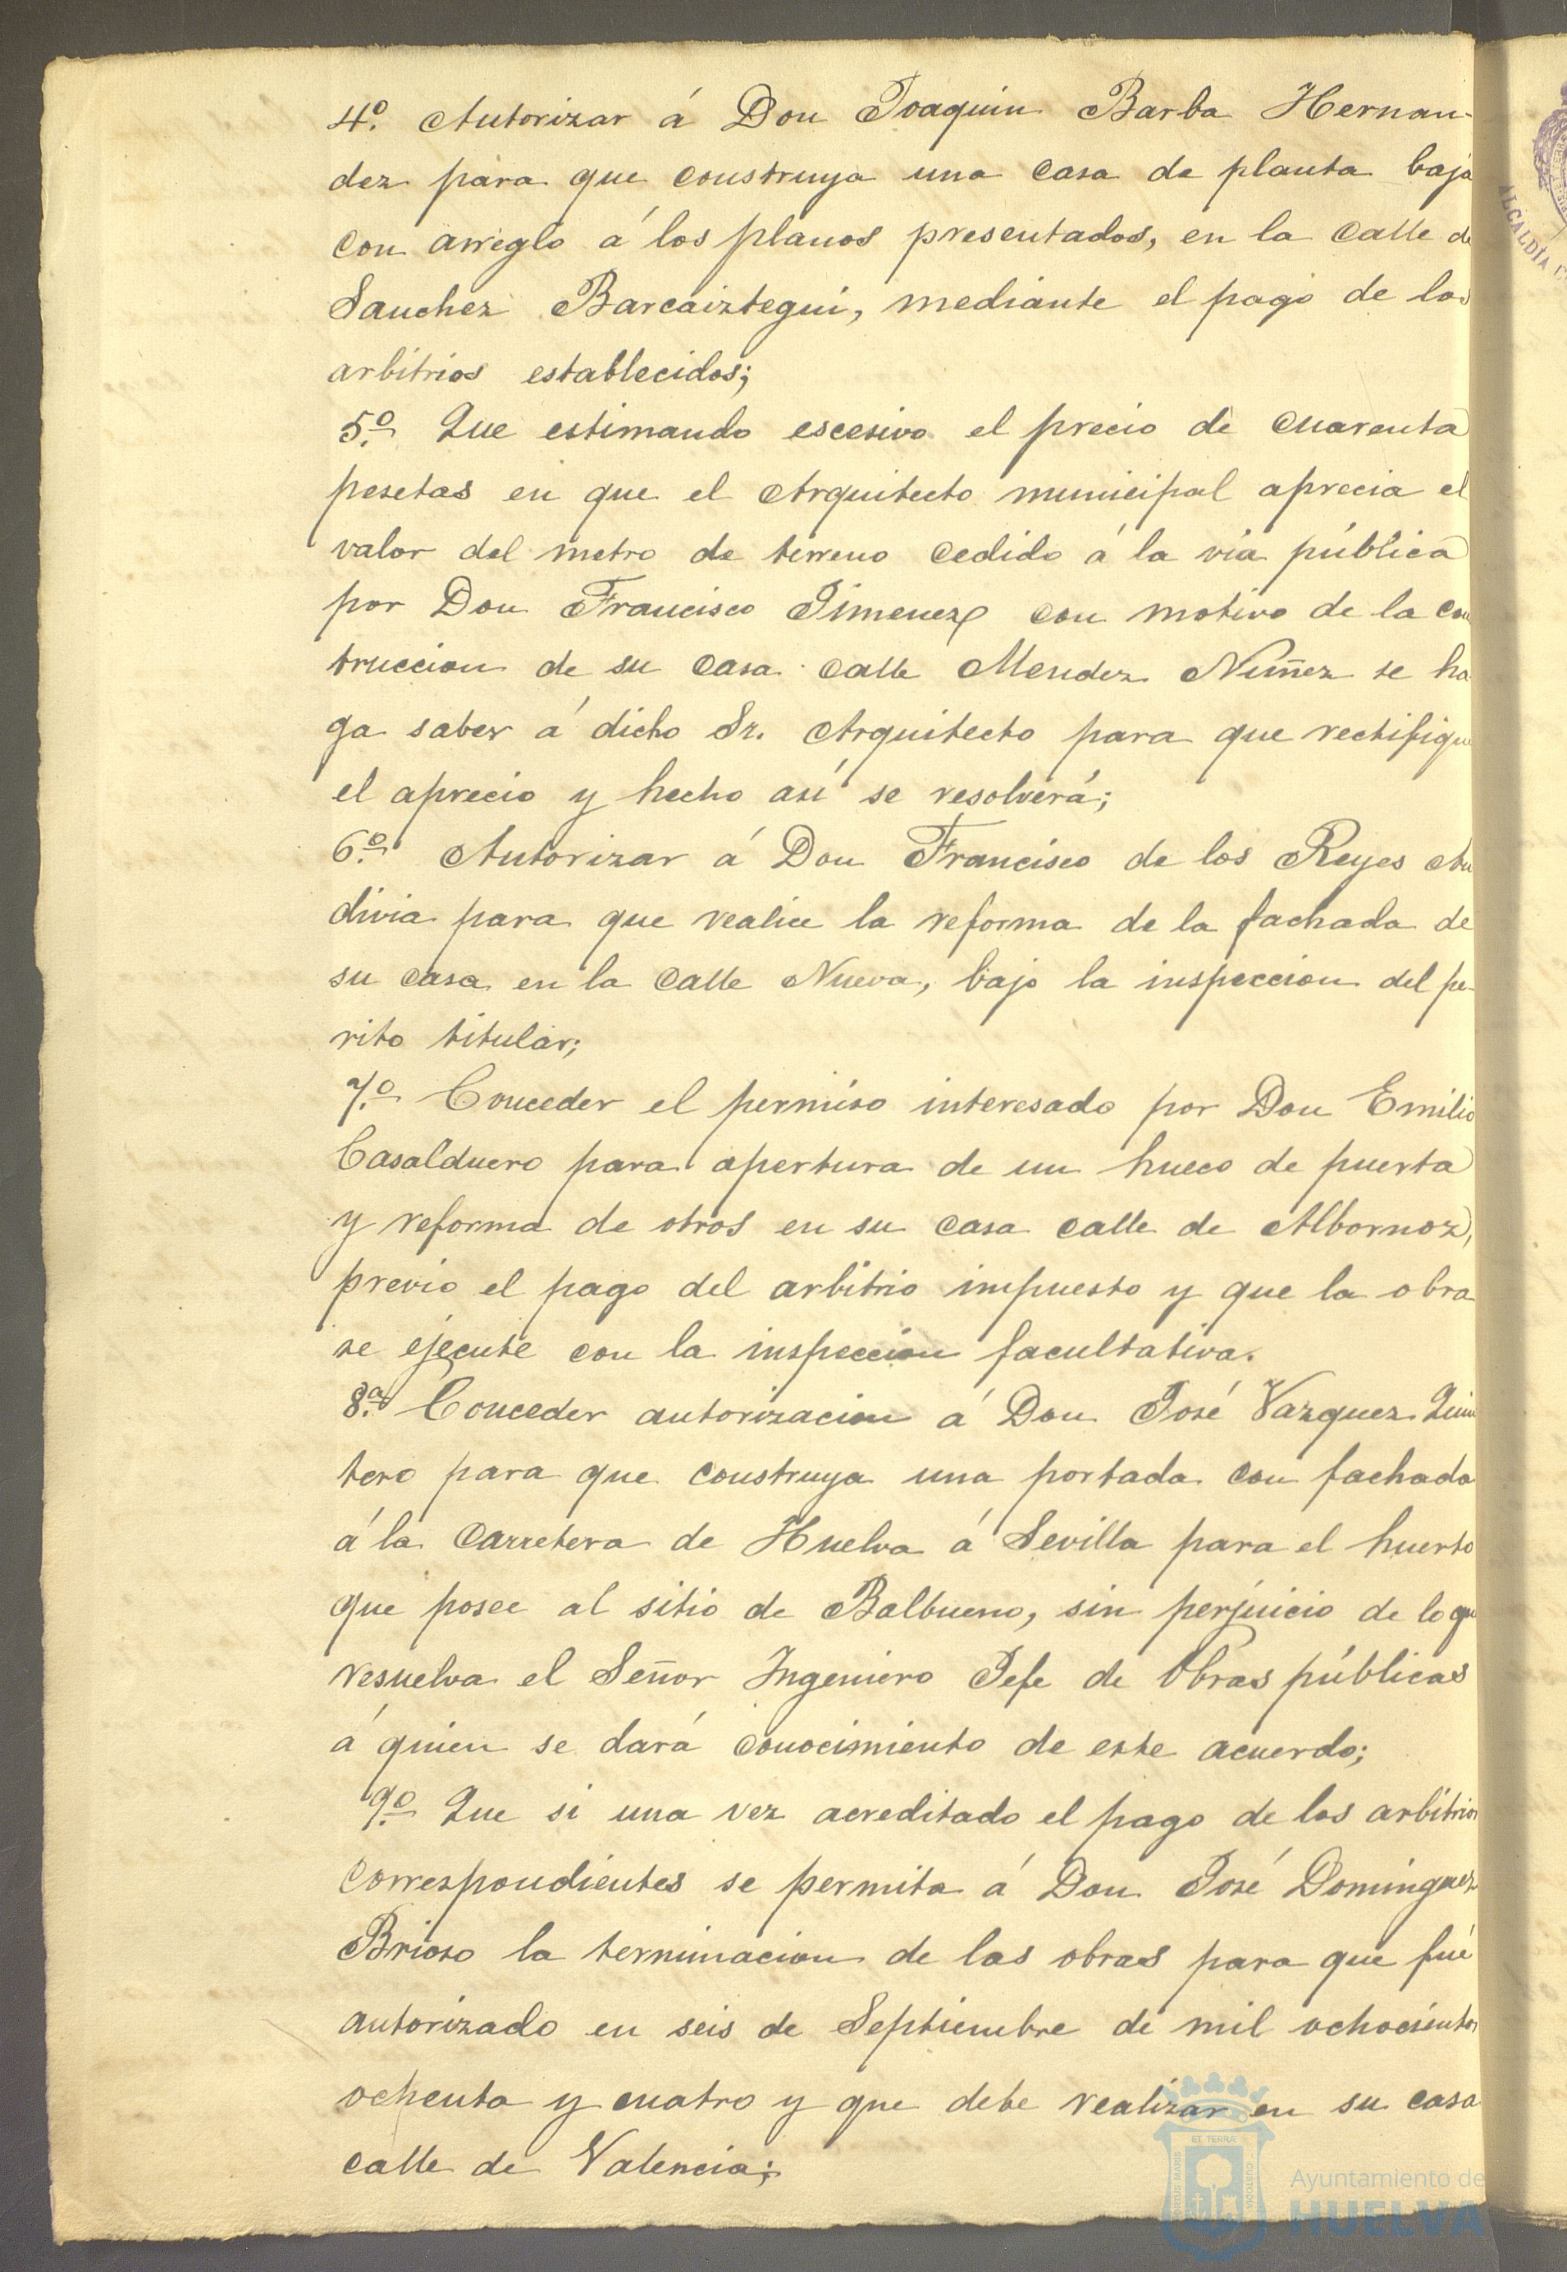 4º. Autorizar á Don Joaquin Barba Hernan-
dez para que construya una casa de planta baja
con arreglo á los planos presentados, en la calle de
Sanchez Barcaiztegui, mediante el pago de los
arbitrios establecidos;
5.º Que estimando escesivo el precio de cuarenta
pesetas en que el Arquitecto municipal aprecia el
valor del metro de terreno cedido á la via pública
por Don Francisco Jimenez con motivo de la cons
truccion de su casa calle Mendez Nuñez se ha
ga saber á dicho Sr. Arquitecto para que rectifique
el aprecio y hecho así se resolverá;
6.º Autorizar á Don Francisco de los Reyes
divia para que realice la reforma de la fachada de
su casa en la calle Nueva, bajo la inspeccion del pe-
rito titular;
7.º Conceder el permiso interesado por Don Emilio
Casalduero para apertura de un hueco de puerta
y reforma de otros en su casa calle de Albornoz,
previo el pago del arbitrio impuesto y que la obra
se ejecute con la inspeccion facultativa.
8.ª Conceder autorizacion á Don José Vazquez Quin
tero para que construya una portada con fachada
á la Carretera de Huelva á Sevilla para el huerto
que posee al sitio de Balbueno, sin perjuicio de lo que
resuelva el Señor Ingeniero Jefe de Obras públicas
á quien se dará conocimiento de este acuerdo;
9.º Que si una vez acreditado el pago de los arbitrios
correspondientes se permita á Don José Dominguez
Brioso la terminacion de las obras para que fué
autorizado en seis de Septiembre de mil ochocientos
ochenta y cuatro y que debe realizar en su casa
calle de Valencia;
ALCALDÍA
ET TERRÆ
PORTUS MARIS
CUSTODIA
Ayuntamiento de
HUELVA